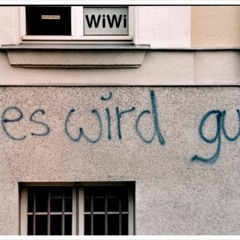 WiWi
es wird gu